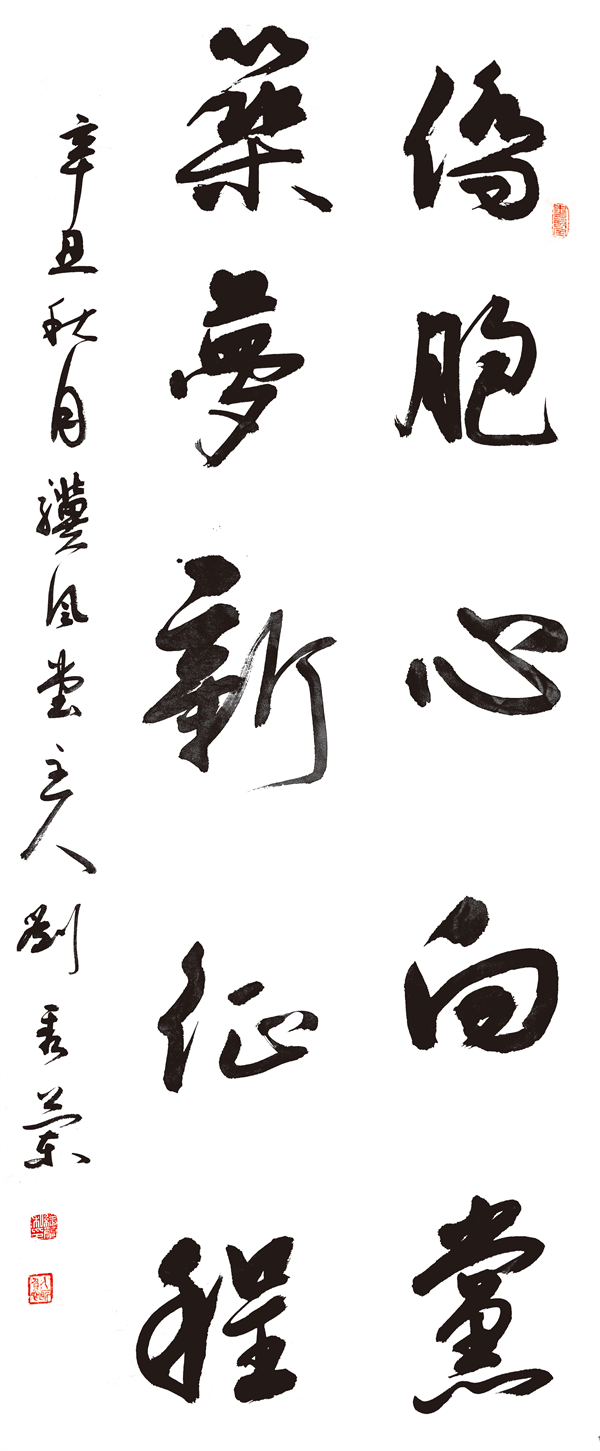 僑胞心向黨
築夢新征程
辛丑秋月驥風堂主人劉秀蘭